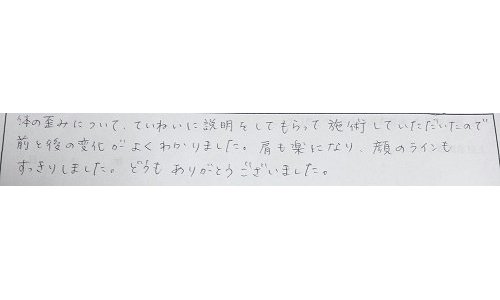 体の歪みについて、ていねいに説明をしてもらって施術していただいたので
前と後の変化がよくわかりました。肩も楽になり、顔のラインも
すっきりしました。どうもありがとうございました。